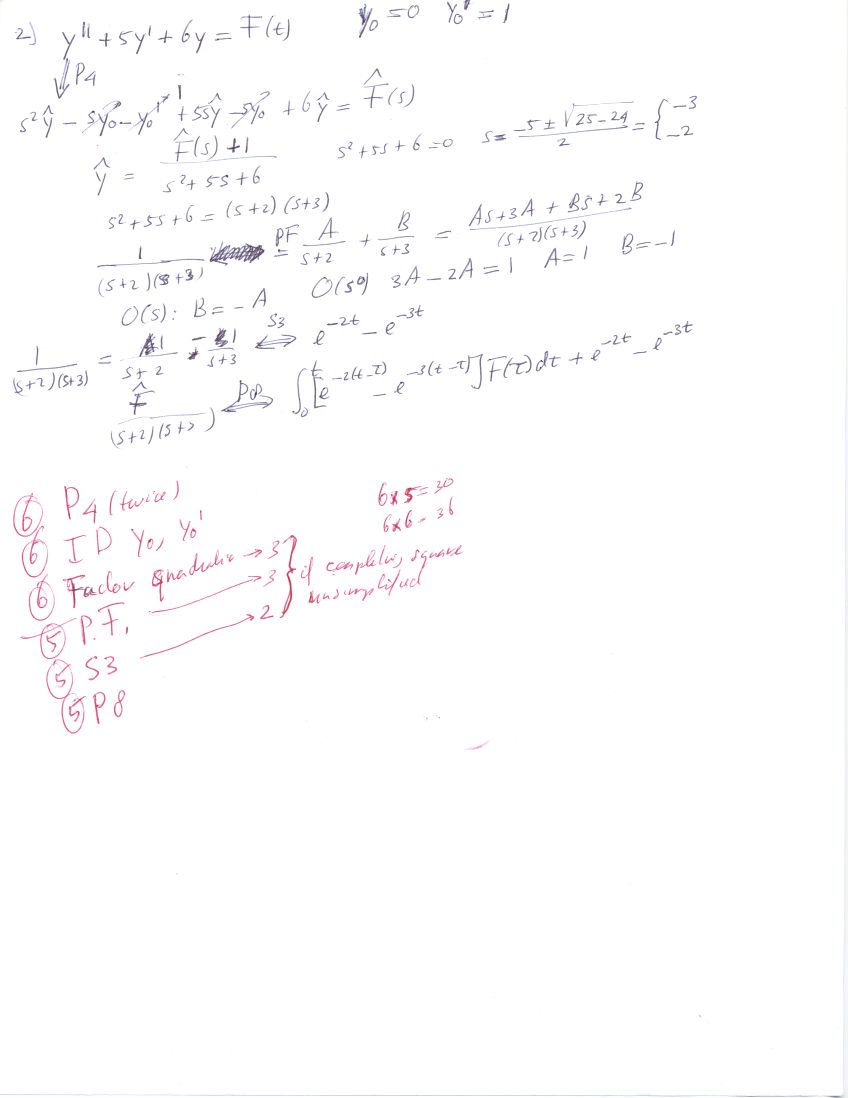 2) y'' + 5y' + 6y = F(t) y₀ = 0 y₀' = 1
⇓ P4
s²ŷ - sy₀ - y₀' + 5sŷ - 5y₀ + 6ŷ = F̂(s)
0 1 0
ŷ = (F̂(s) + 1)/(s² + 5s + 6) s² + 5s + 6 = 0 s = (-5 ± √(25 - 24))/2 = { -3
-2
s² + 5s + 6 = (s+2)(s+3)
1/((s+2)(s+3)) PF= A/(s+2) + B/(s+3) = (As + 3A + Bs + 2B)/((s+2)(s+3))
O(s): B = -A O(s⁰) 3A - 2A = 1 A = 1 B = -1
1/((s+2)(s+3)) = 1/(s+2) - 1/(s+3) ⇔ S3 e^{-2t} - e^{-3t}
F̂/((s+2)(s+3)) ⇔ P8 ∫₀ᵗ [e^{-2(t-τ)} - e^{-3(t-τ)}] F(τ) dτ + e^{-2t} - e^{-3t}
6 P4 (twice) 6x5=30
6 ID y₀, y₀' 6x6=36
6 Factor quadratic → 3
5 P.F. → 3 } if completing square
unsimplified
5 S3 → 2
5 P8